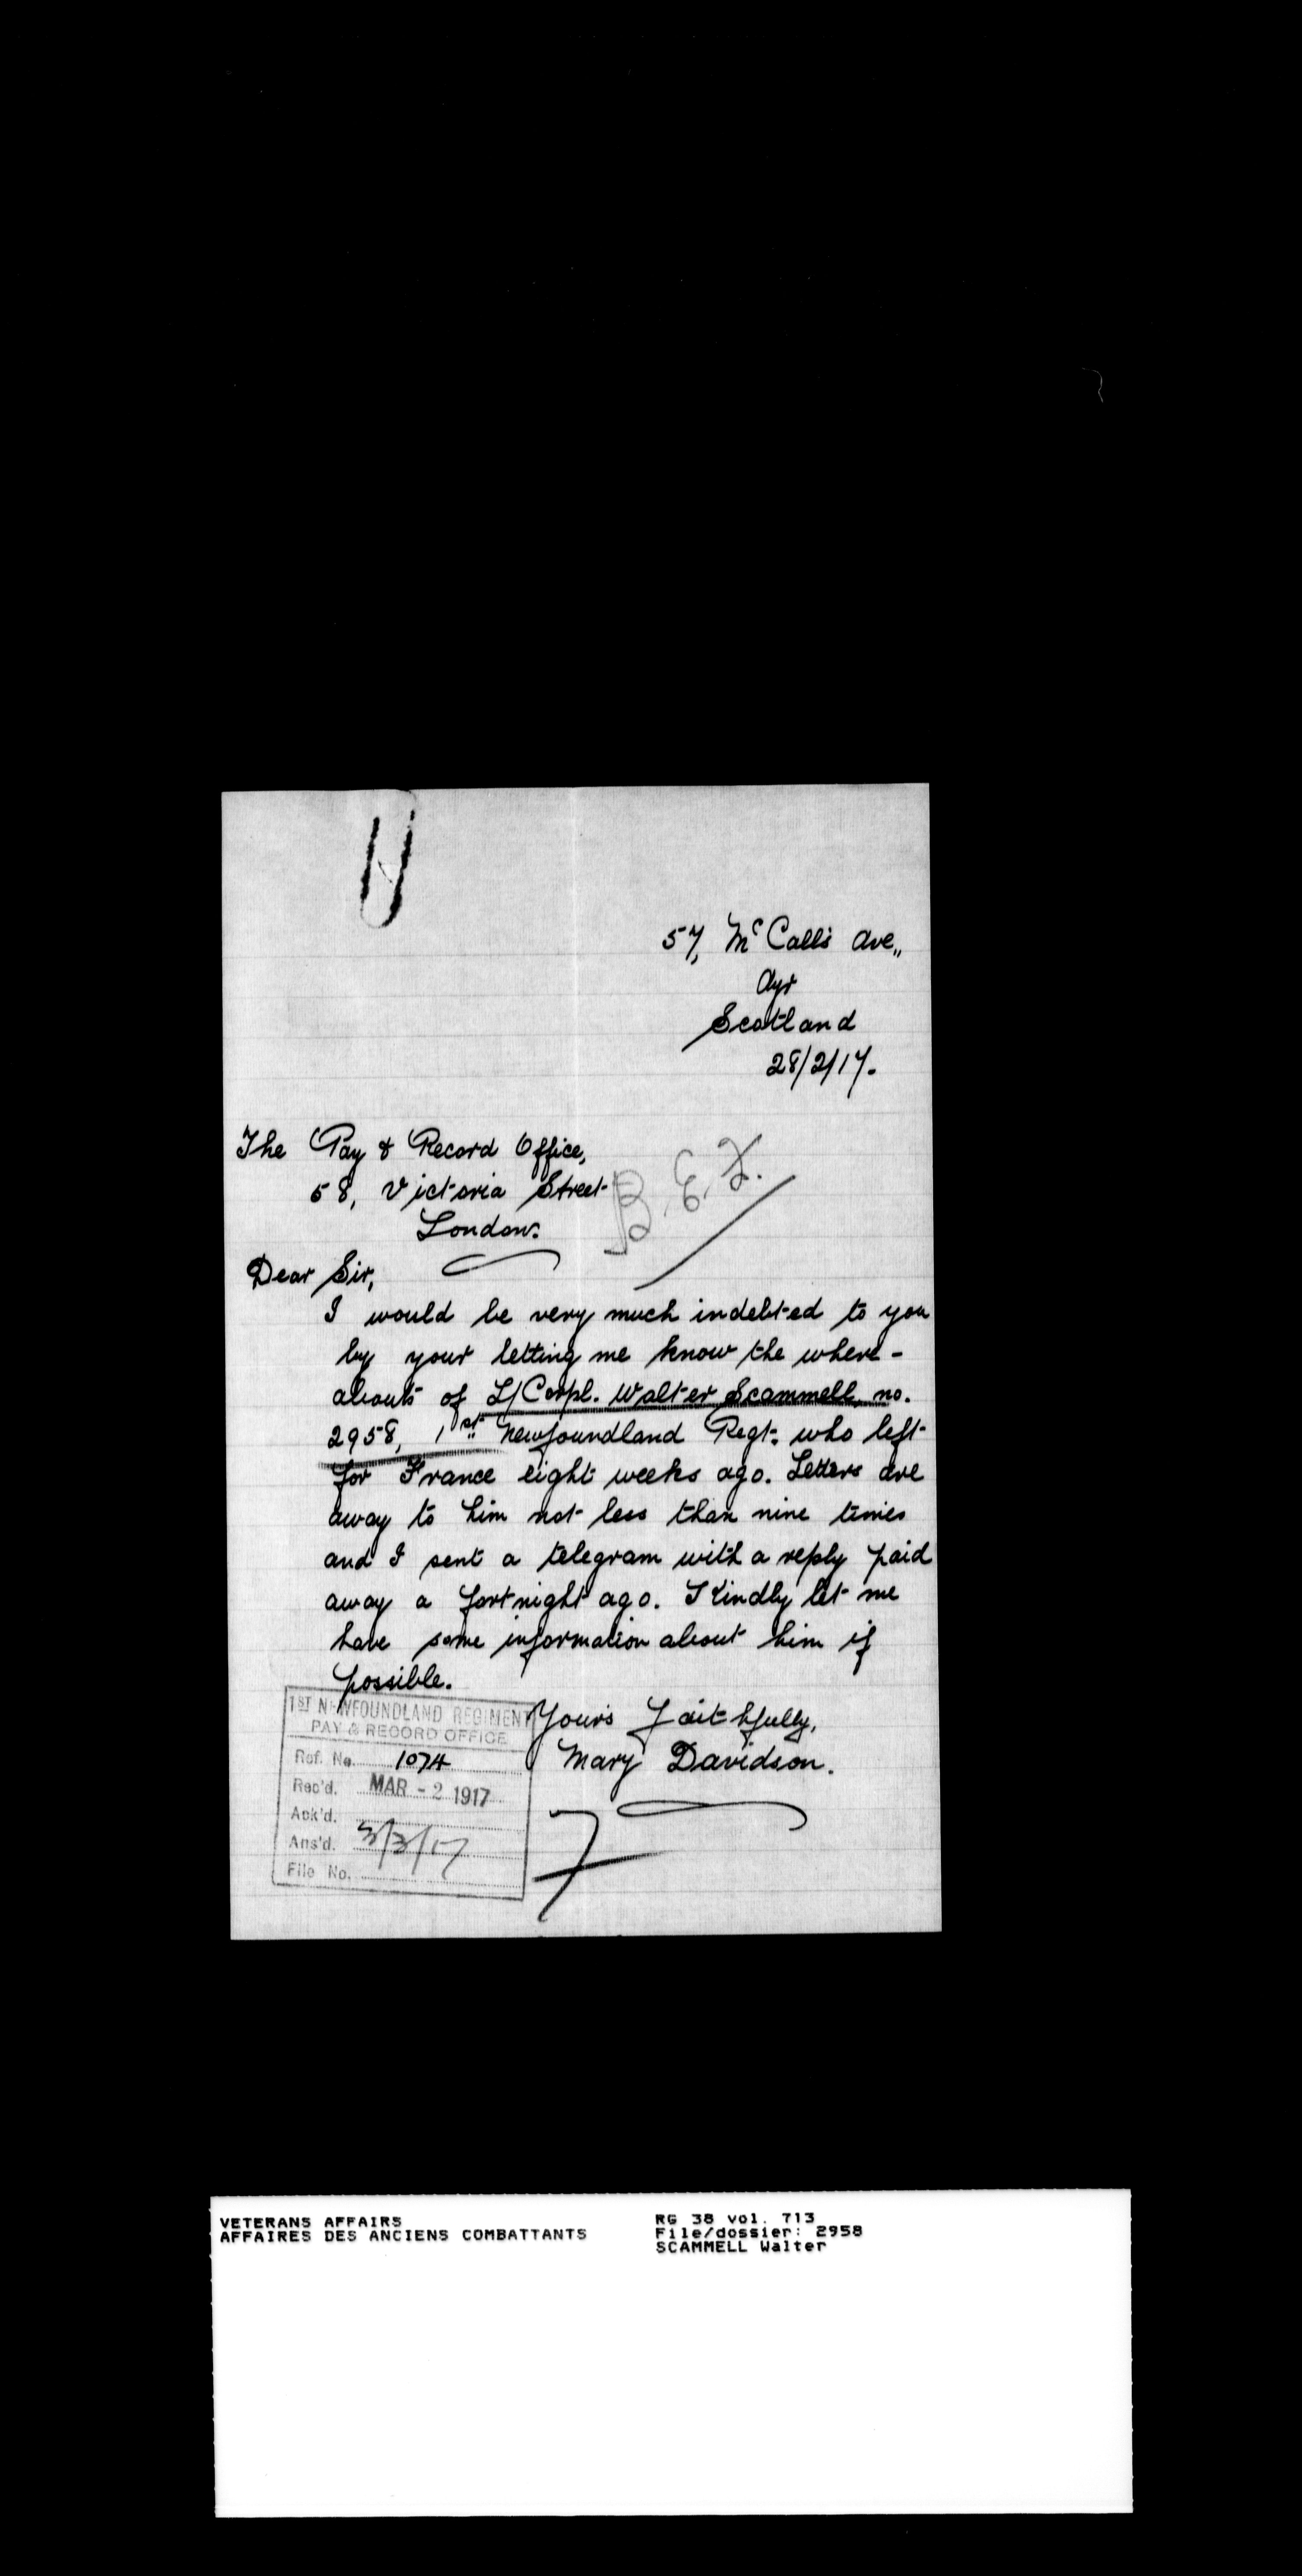 57, McCall's Ave.,
Ayr
Scotland
28/2/17.
The Pay & Record Office,
58, Victoria Street
London.
B.E.F.
Dear Sir,
I would be very much indebted to you
by your letting me know the where-
abouts of L/Corpl. Walter Scammell, no.
2958, 1st Newfoundland Regt. who left
for France eight weeks ago. Letters are
away to him not less than nine times
and I sent a telegram with a reply paid
away a fortnight ago. Kindly let me
have some information about him if
possible.
Yours faithfully,
Mary Davidson.
1ST NEWFOUNDLAND REGIMENT
PAY & RECORD OFFICE
Ref. No. 1074
Rec'd. MAR - 2 1917
Ack'd.
Ans'd. 3/3/17
File No.
VETERANS AFFAIRS
AFFAIRES DES ANCIENS COMBATTANTS
RG 38 vol. 713
File/dossier: 2958
SCAMMELL Walter